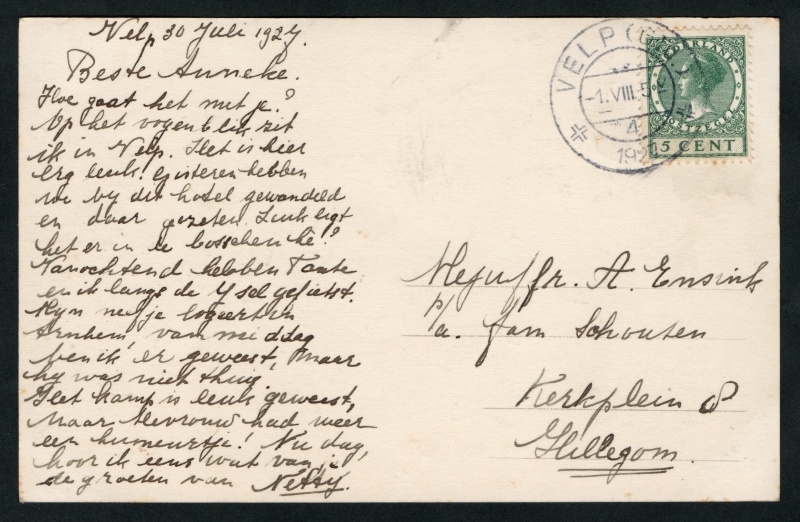 Velp 30 Juli 1927.
Beste Anneke.
Hoe gaat het met je?
Op het oogenblik zit
ik in Velp. Het is hier
erg leuk. Gisteren hebben
we by dit hotel gewandeld
en daar gezeten. Leuk ligt
het er in de bosschen hè?
Vanochtend hebben Tante
en ik langs de Ysel gefietst.
Myn neefje logeert in
Arnhem, van middag
ben ik er geweest, maar
hy was niet thuis.
Het kamp is leuk geweest,
maar Mevrouw had weer
een humeurtje! Nu dag,
hoor ik eens wat van je
de groeten van Netty.
VELP (G
-1.VIII.5
4
192
NEDERLAND
POSTZEGEL
5 CENT
Mejuffr. A. Ensink
p/a. fam Schouten
Kerkplein 8
Hillegom.